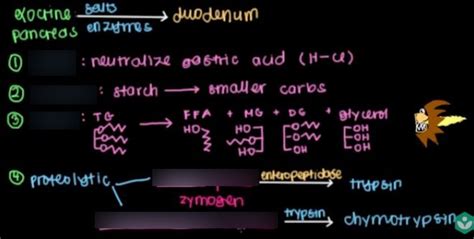 exocrine pancreas salts enzymes → duodenum
① : neutralize gastric acid (H-Cl)
② : starch → smaller carbs
③ : TG → FFA + MG + DG + glycerol
HO HO OH OH OH OH
④ proteolytic enteropeptidase → trypsin
zymogen
trypsin → chymotrypsin